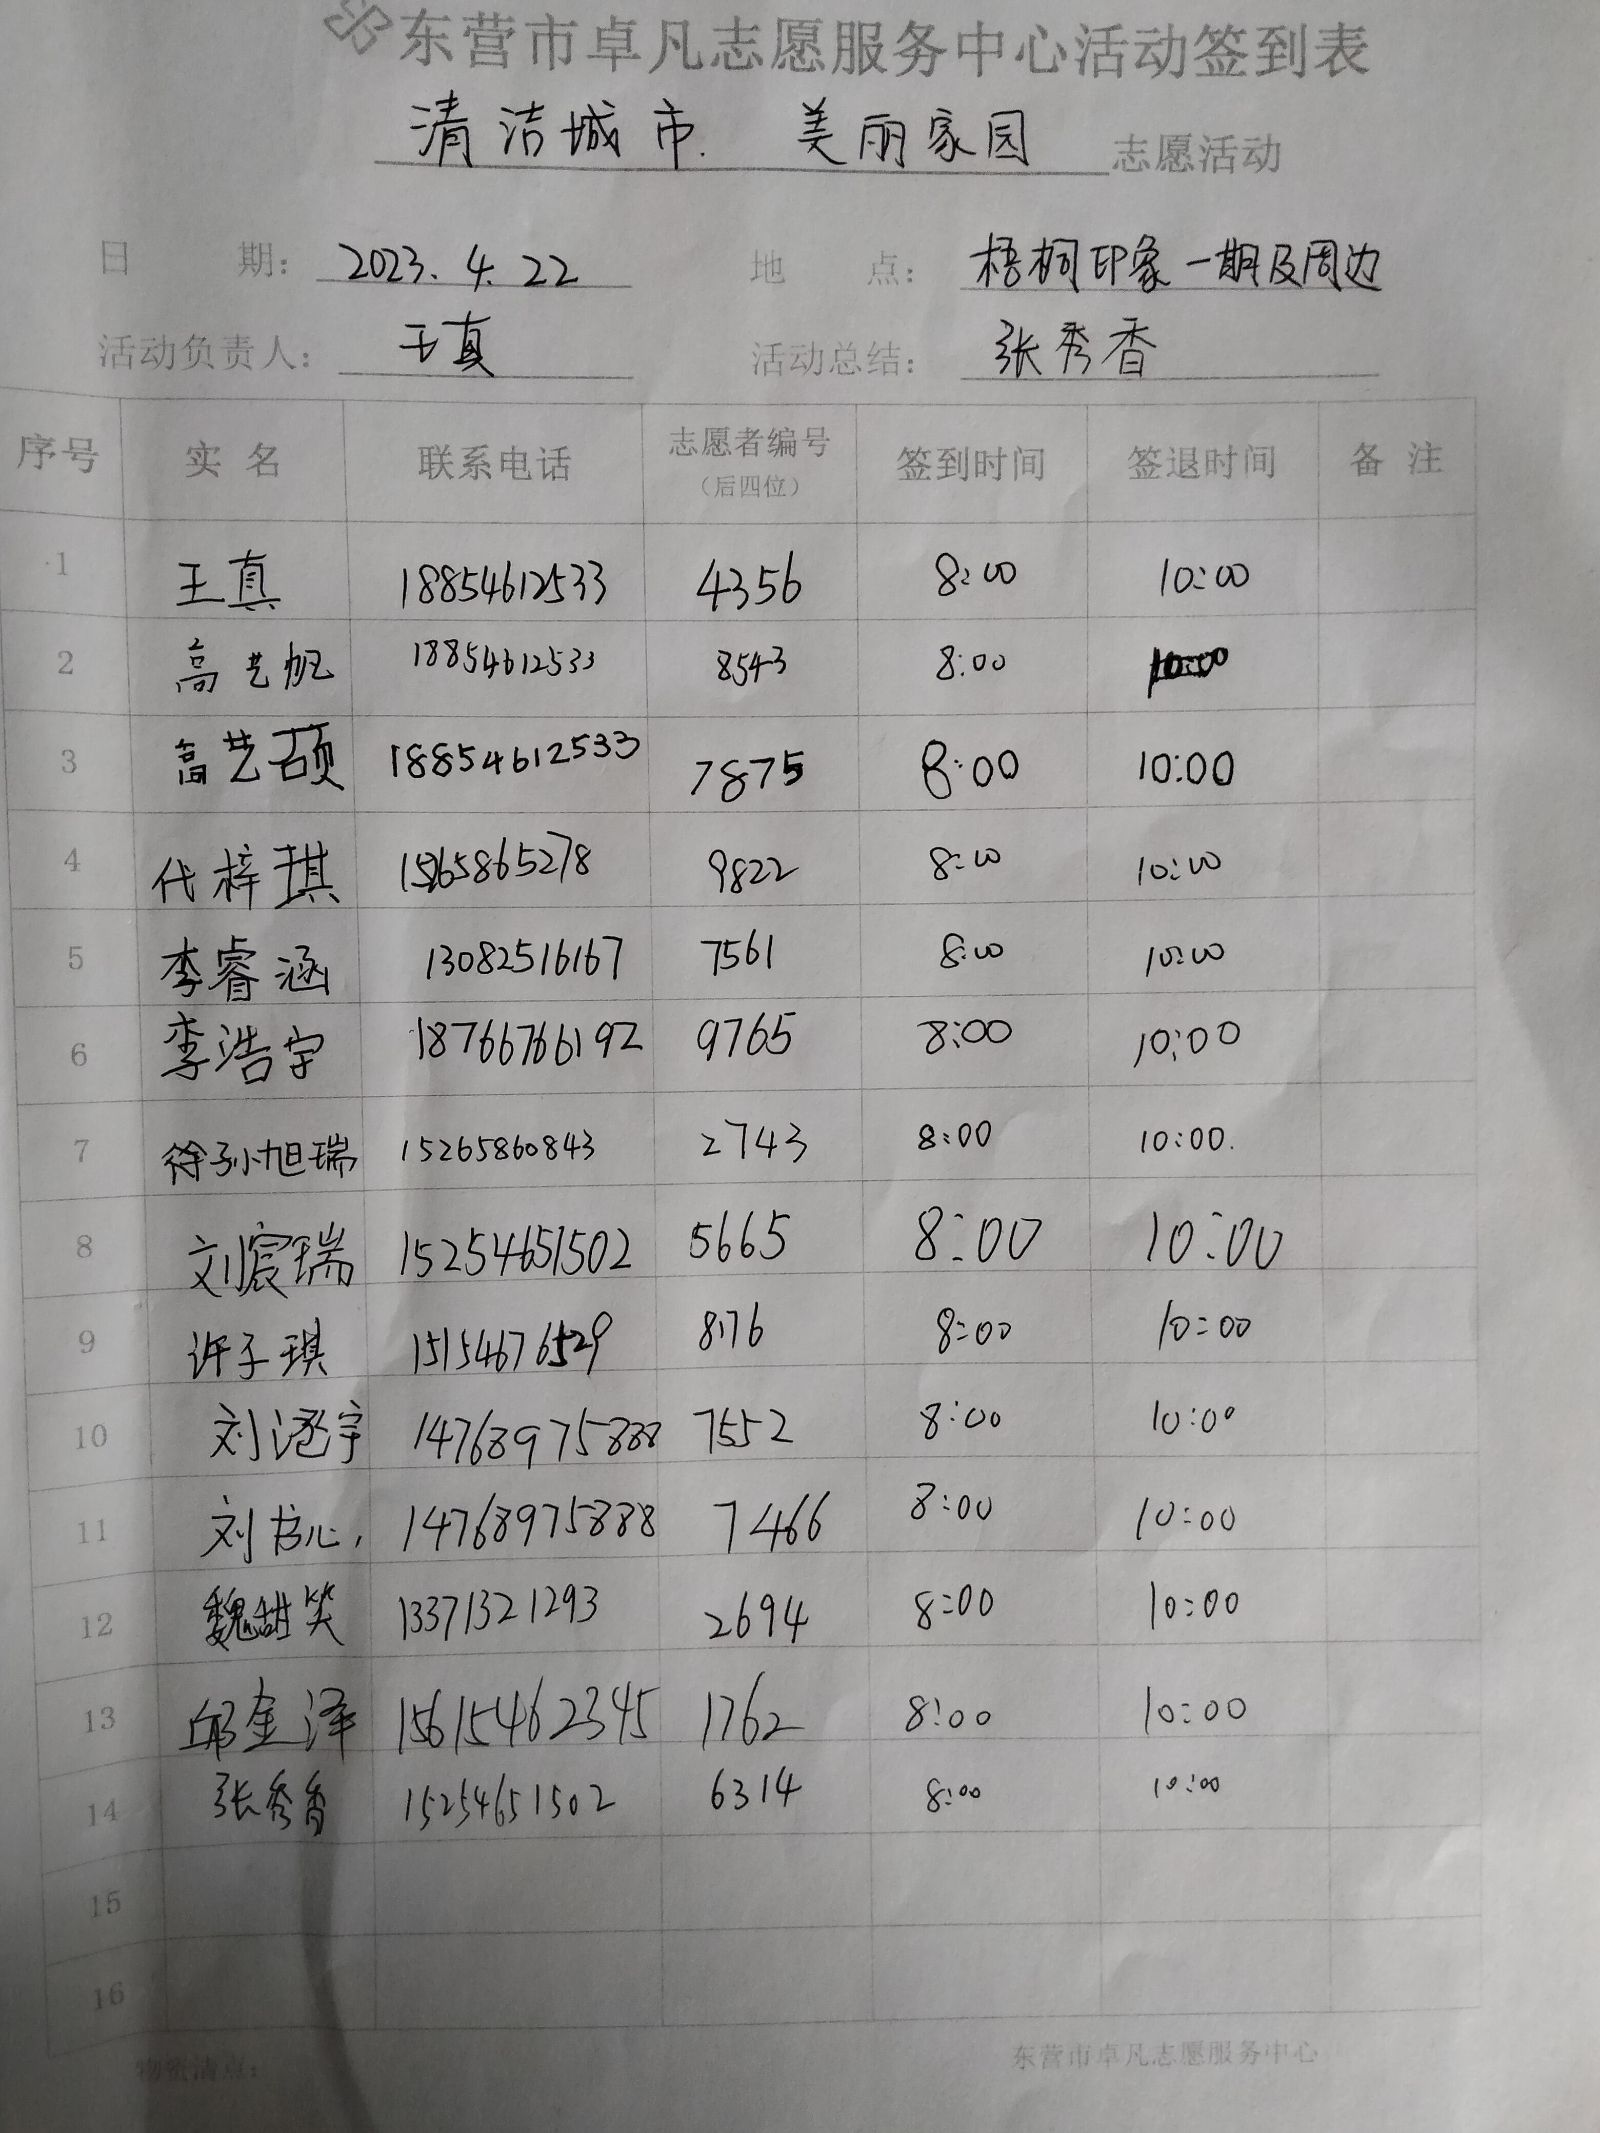 东营市卓凡志愿服务中心活动签到表
清洁城市 美丽家园 志愿活动
日 期: 2023.4.22 地 点: 梧桐印象一期及周边
活动负责人: 王真 活动总结: 张秀香
序号 实名 联系电话 志愿者编号（后四位） 签到时间 签退时间 备注
1 王真 18854612533 4356 8:00 10:00
2 高艺帆 18854612533 8543 8:00 10:00
3 高艺硕 18854612533 7875 8:00 10:00
4 代梓琪 15865278 9822 8:00 10:00
5 李睿涵 13082516167 7561 8:00 10:00
6 李浩宇 18766766192 9765 8:00 10:00
7 徐孙旭瑞 15265860843 2743 8:00 10:00.
8 刘宸瑞 15254651502 5665 8:00 10:00
9 许子琪 15154676529 8176 8:00 10:00
10 刘逐宇 14768975888 7552 8:00 10:00
11 刘书心, 14768975888 7466 8:00 10:00
12 魏甜笑 13371321293 2694 8:00 10:00
13 邱金泽 15615462345 1762 8:00 10:00
14 张秀香 15254651502 6314 8:00 10:00
15
16
物资清点: 东营市卓凡志愿服务中心